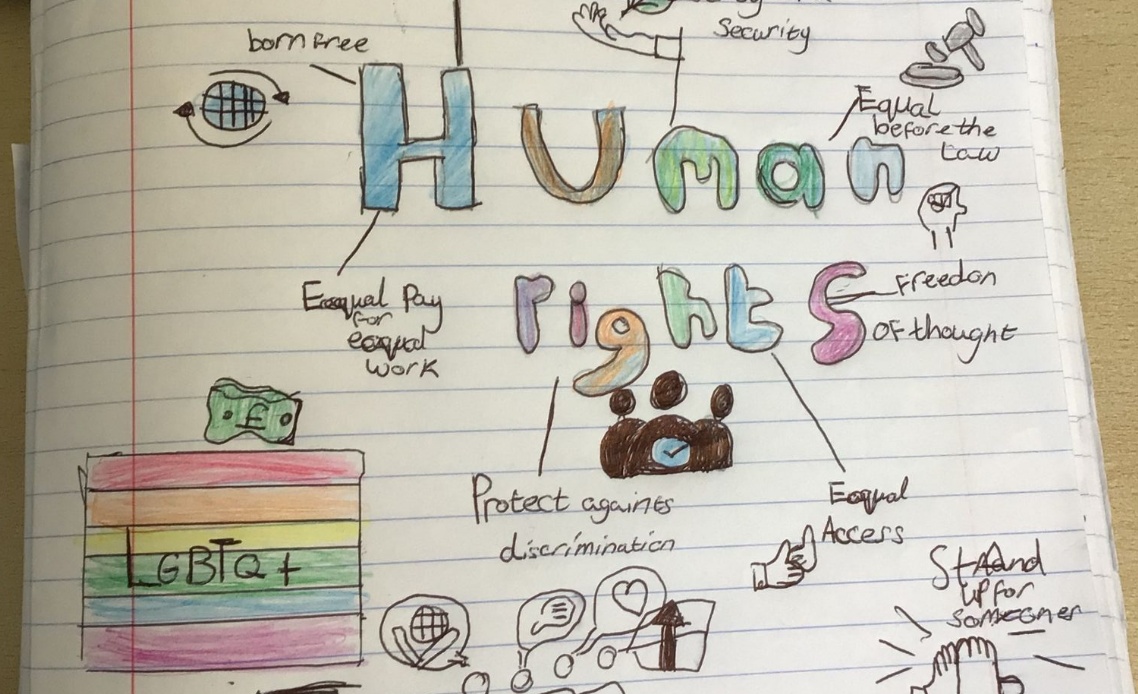 Security
born free
Equal
before the
Law
Human
Eequal Pay
for
eequal
work
rights
Freedon
OF thought
£
Protect againts
discrimination
Eequal
Access
LGBTQ+
Stand
up for